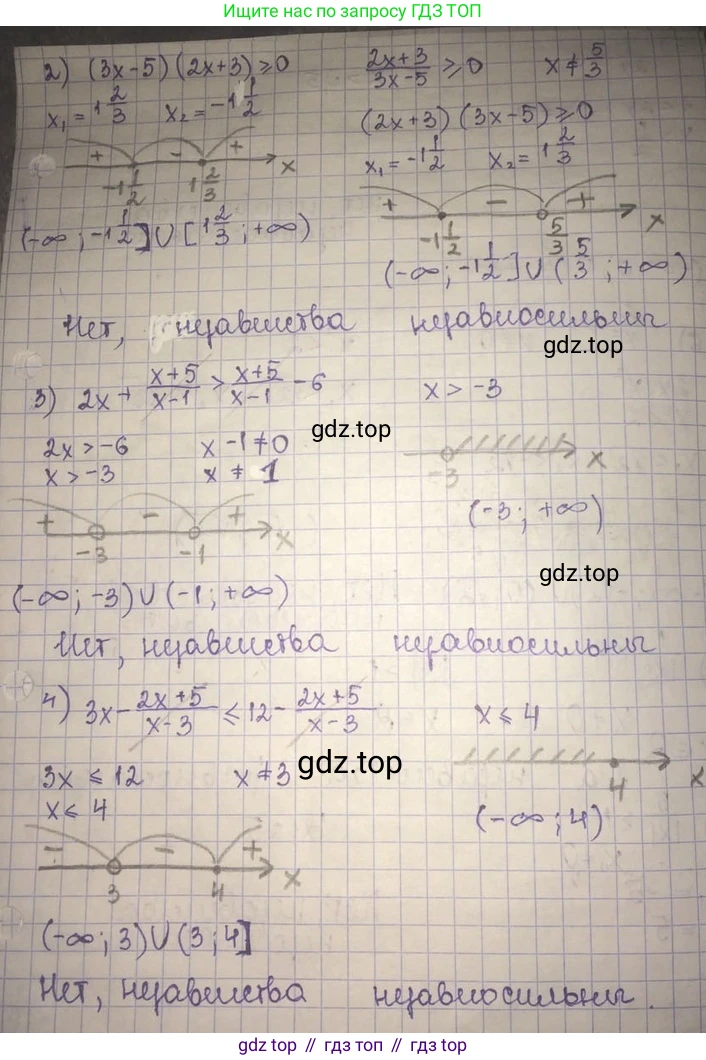 Ищите нас по запросу ГДЗ ТОП
2) (3x-5)(2x+3)≥0
x₁=1 2/3 x₂=-1 1/2
+ - + x
-1 1/2 1 2/3
(-∞; -1 1/2] ∪ [1 2/3; +∞)
(2x+3)/(3x-5) ≥0 x≠5/3
(2x+3)(3x-5)≥0
x₁=-1 1/2 x₂=1 2/3
+ - + x
-1 1/2 5/3
(-∞; -1 1/2] ∪ (5/3; +∞)
Нет, неравенства неравносильны
gdz.top
3) 2x + (x+5)/(x-1) > (x+5)/(x-1) - 6
gdz.top
2x>-6 x-1≠0
x>-3 x≠1
+ - + x
-3 -1
(-∞; -3) ∪ (-1; +∞)
x>-3
-3 x
(-3; +∞)
gdz.top
Нет, неравенства неравносильны
4) 3x - (2x+5)/(x-3) ≤ 12 - (2x+5)/(x-3)
gdz.top
3x≤12 x≠3
x≤4
- - + x
3 4
(-∞; 3) ∪ (3; 4]
x≤4
4 x
(-∞; 4)
Нет, неравенства неравносильны.
gdz top // гдз топ // гдз.top // gdz.top